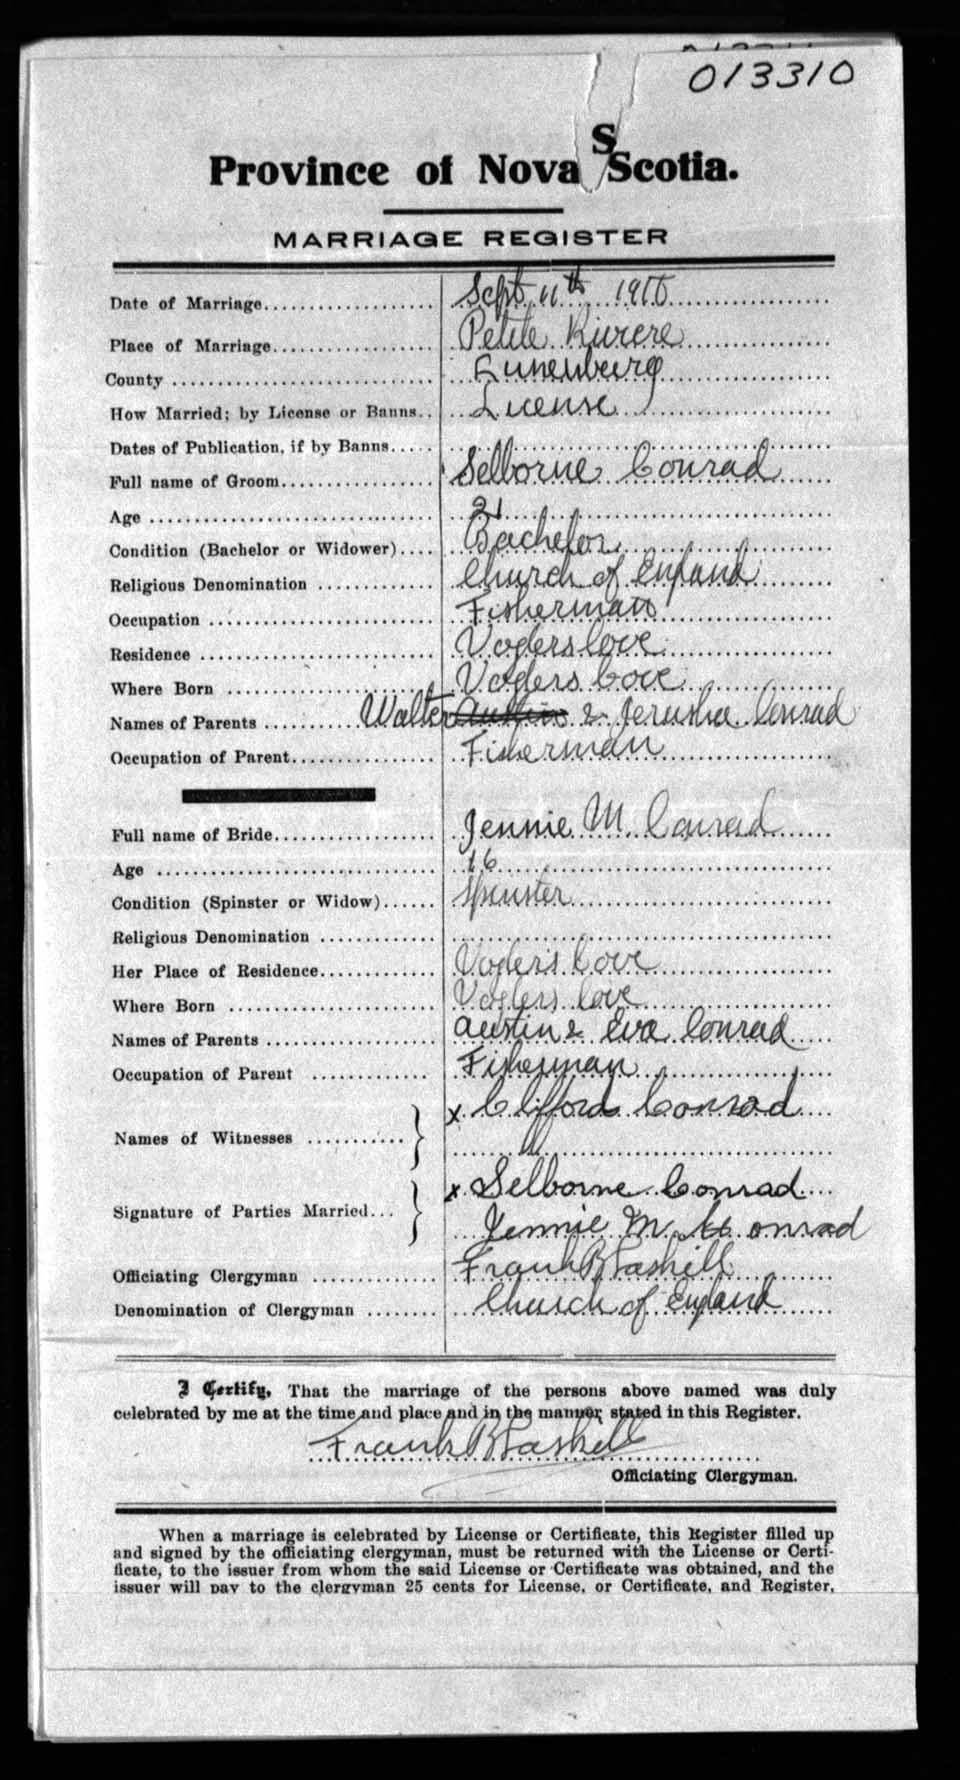 013310
Province of Nova Scotia.
MARRIAGE REGISTER
Date of Marriage Sept 11th
Place of Marriage Petite Riviere
County Lunenburg
How Married; by License or Banns License
Dates of Publication, if by Banns
Full name of Groom Selborne Conrad
Age 21
Condition (Bachelor or Widower) Bachelor
Religious Denomination Church of England
Occupation Fisherman
Residence Voglers Cove
Where Born Voglers Cove
Names of Parents Walter Austin & Jerusha Conrad
Occupation of Parent Fisherman
Full name of Bride Jennie M. Conrad
Age 16
Condition (Spinster or Widow) Spinster
Religious Denomination
Her Place of Residence Vogler's Cove
Where Born Voglers Cove
Names of Parents Austin & Eva Conrad
Occupation of Parent Fisherman
Names of Witnesses x Clifford Conrad
Signature of Parties Married x Selborne Conrad
Jennie M. Conrad
Officiating Clergyman Frank B Gaskill
Denomination of Clergyman Church of England
I Certify, That the marriage of the persons above named was duly
celebrated by me at the time and place and in the manner stated in this Register.
Frank B Gaskill
Officiating Clergyman.
When a marriage is celebrated by License or Certificate, this Register filled up
and signed by the officiating clergyman, must be returned with the License or Certi-
ficate, to the issuer from whom the said License or Certificate was obtained, and the
issuer will pay to the clergyman 25 cents for License, or Certificate, and Register,